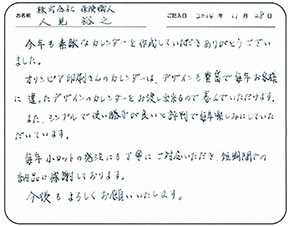 株式会社 保険職人
お名前 人見 裕之 ご記入日 2014年 11月 28日
今年も素敵なカレンダーを作成していただきありがとうござい
ました。
オリンピア印刷さんのカレンダーは、デザインも豊富で毎年お客様
に違ったデザインのカレンダーをお渡し出来るので喜んでいただけます。
また、シンプルで使い勝手が良いと評判で毎年楽しみにしていた
だいています。
毎年小ロットの発注にも丁寧にご対応いただき、短期間での
納品に感謝しております。
今後もよろしくお願いいたします。